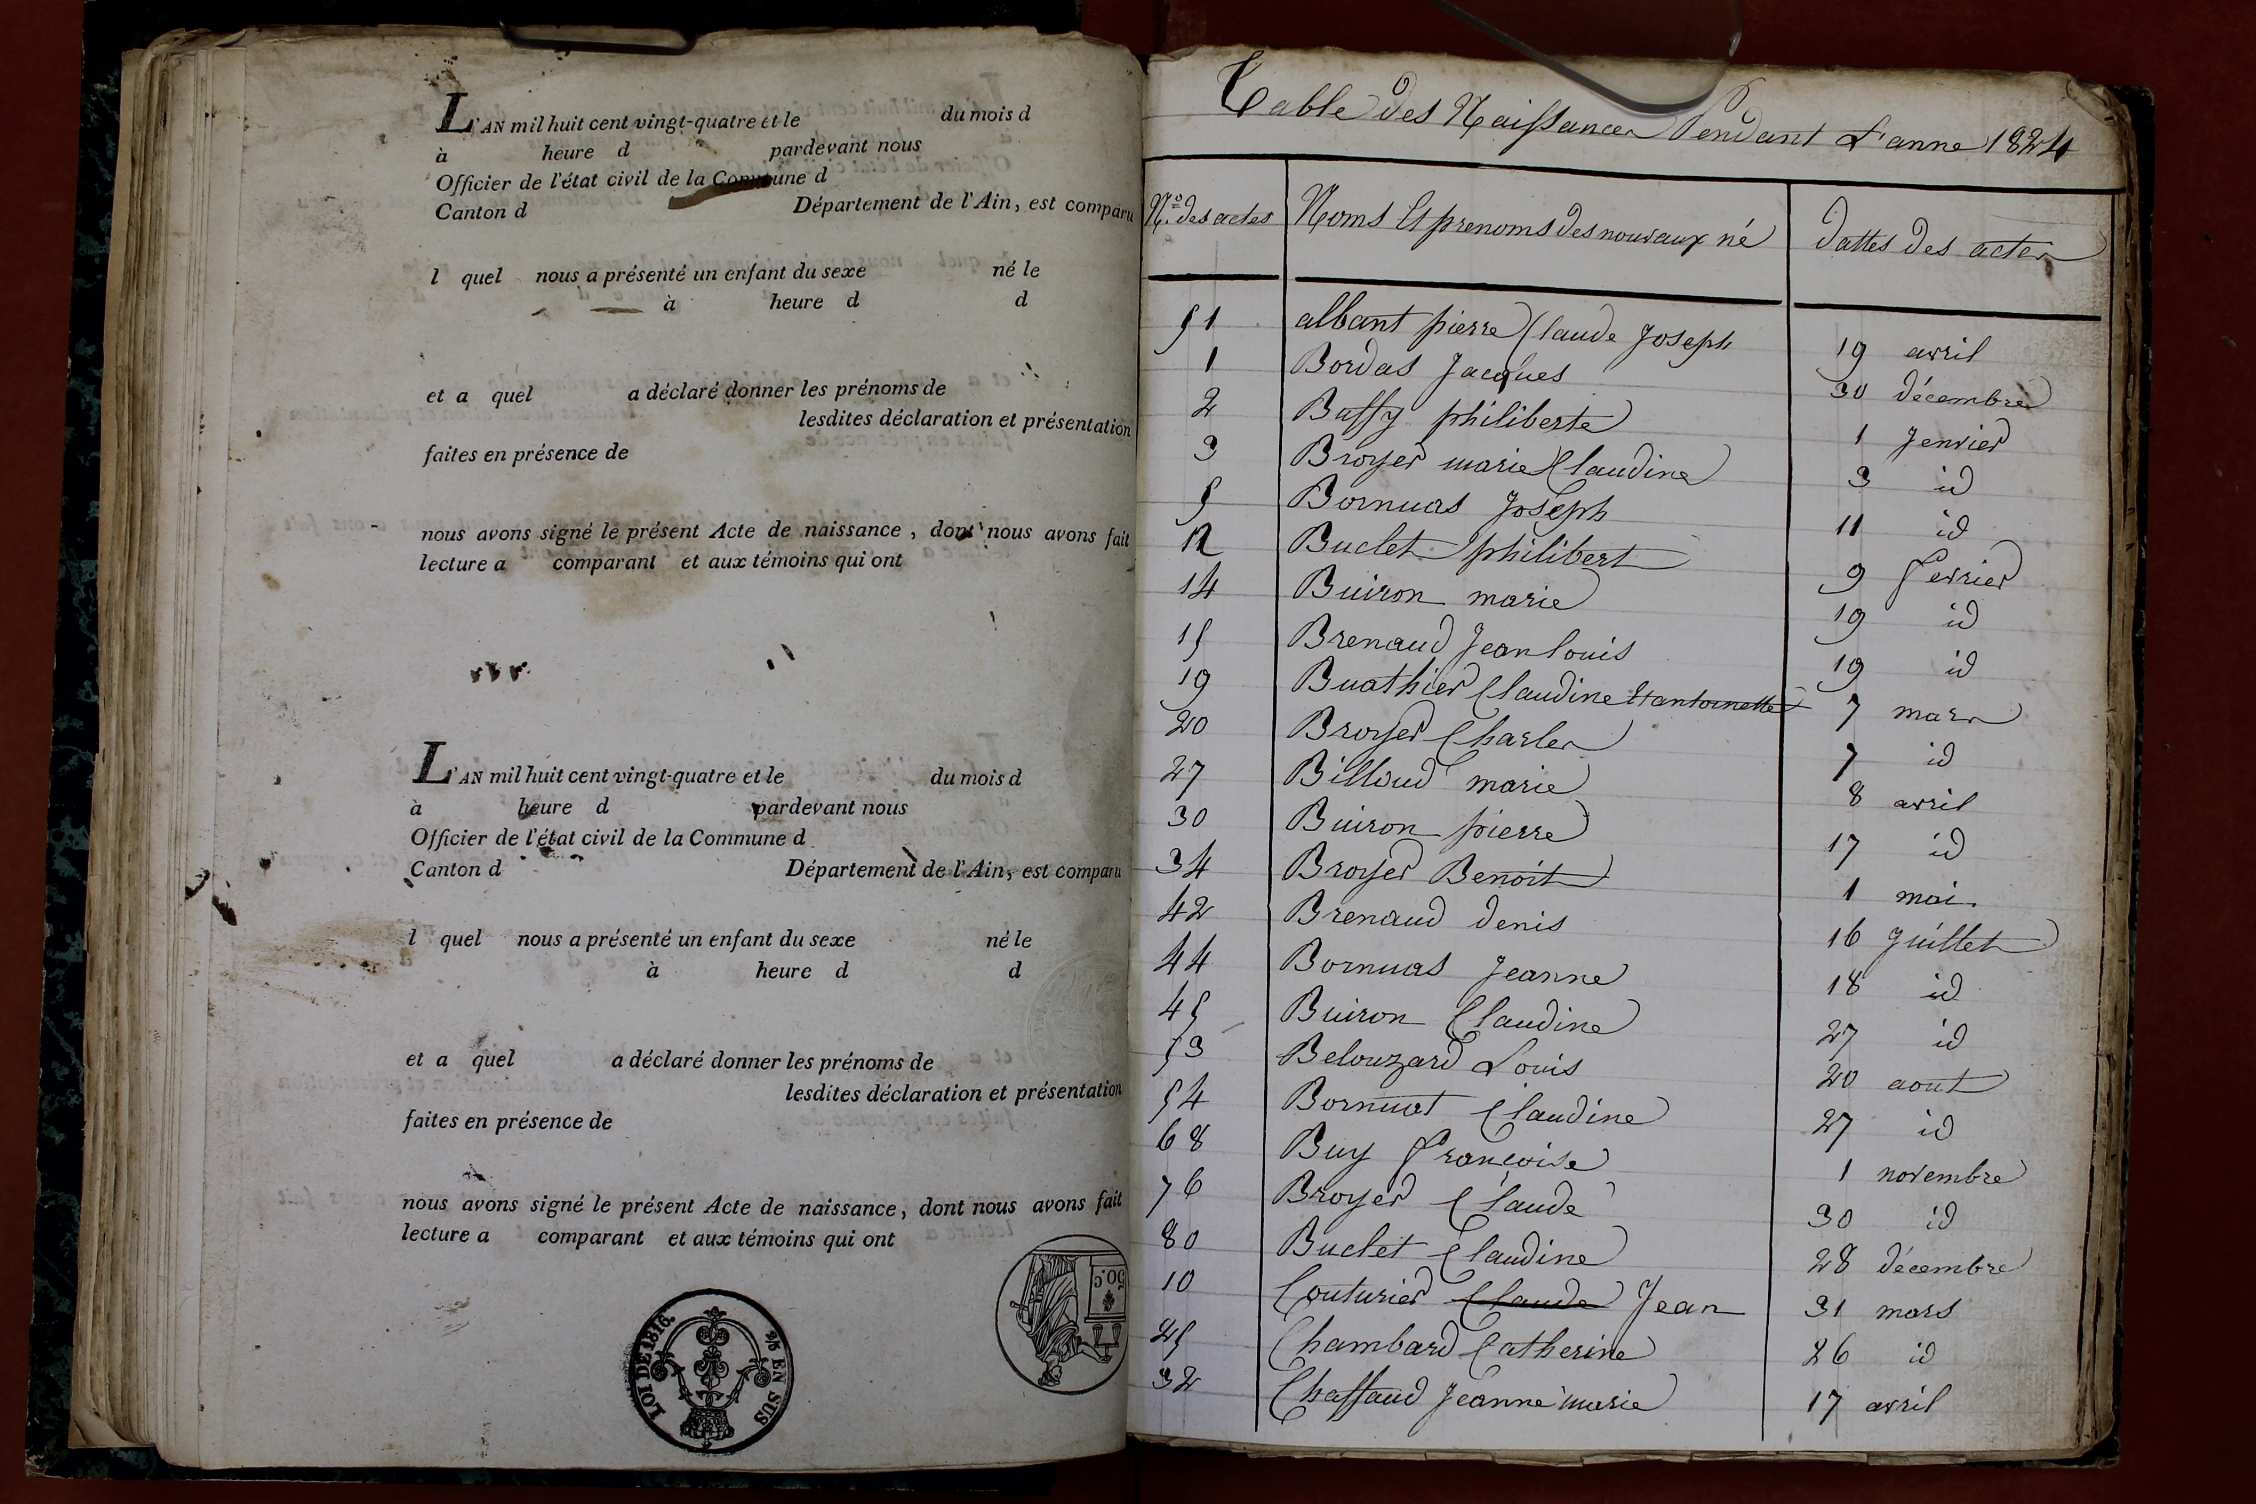 L'AN mil huit cent vingt-quatre et le du mois d
à heure d pardevant nous
Officier de l'état civil de la Commune d
Canton d Département de l'Ain, est comparu
l quel nous a présenté un enfant du sexe né le
à heure d d
et a quel a déclaré donner les prénoms de
lesdites déclaration et présentation
faites en présence de
nous avons signé le présent Acte de naissance, dont nous avons fait
lecture a comparant et aux témoins qui ont
L'AN mil huit cent vingt-quatre et le du mois d
à heure d pardevant nous
Officier de l'état civil de la Commune d
Canton d Département de l'Ain, est comparu
l quel nous a présenté un enfant du sexe né le
à heure d d
et a quel a déclaré donner les prénoms de
lesdites déclaration et présentation
faites en présence de
nous avons signé le présent Acte de naissance, dont nous avons fait
lecture a comparant et aux témoins qui ont
LOI DE 1816. 2/5 EN SUS
50.C
Table des Naissances Pendant L'anne 1824
N.o des actes Noms Et prenoms des nouvaux né dattes des actes
51 albant pierre Claude Joseph 19 avril
1 Bordas Jacques 30 décembre
2 Baffy philiberte 1 Jenvier
3 Broyer marie Claudine 3 id
5 Bornuas Joseph 11 id
12 Buclet philibert 9 fevrier
14 Buiron marie 19 id
15 Brenaud Jean louis 19 id
19 Buathier Claudine Et antoinette 7 mars
20 Broyer Charles 7 id
27 Billoud marie 8 avril
30 Buiron pierre 17 id
34 Broyer Benoit 1 mai
42 Brenaud denis 16 Juillet
44 Bornuas Jeanne 18 id
45 Buiron Claudine 27 id
53 Belouzard Louis 20 aout
54 Bornuat Claudine 27 id
68 Buy françoise 1 novembre
76 Broyer Claude 30 id
80 Buclet Claudine 28 décembre
10 Couturier Claude Jean 31 mars
25 Chambard Catherine 26 id
32 Chaffaud Jeanne marie 17 avril